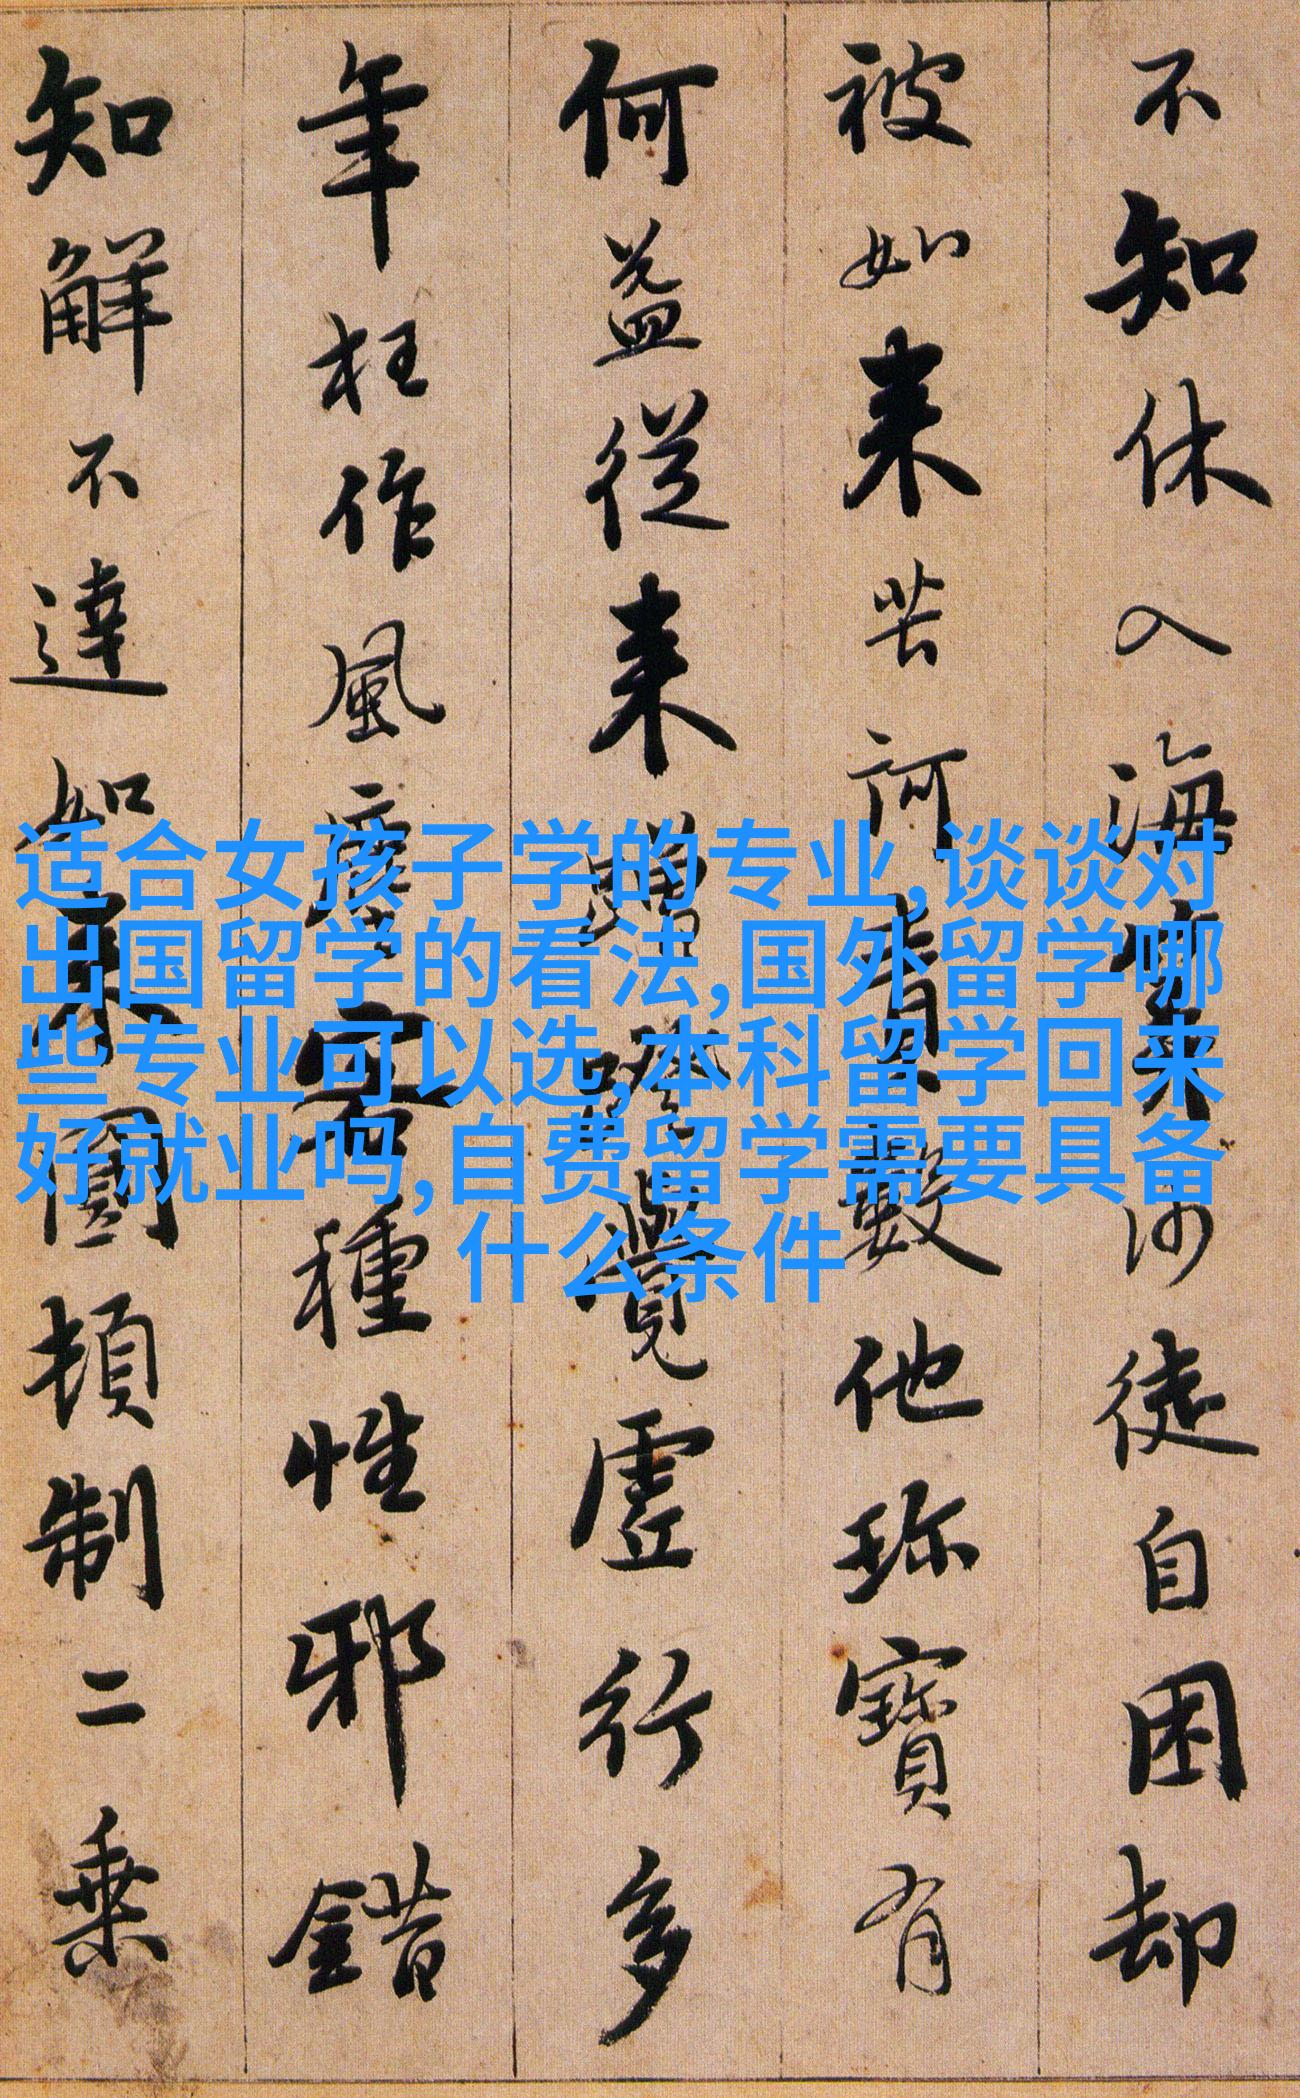 不知休入海筭沙徒自困却
被如来苦訶責數他珎寶有
何益從来蹭蹬覺虛行多
年枉作風塵客種性邪錯
知解不達如来圓頓制二乘
适合女孩子学的专业,谈谈对
出国留学的看法,国外留学哪
些专业可以选,本科留学回来
好就业吗,自费留学需要具备
什么条件